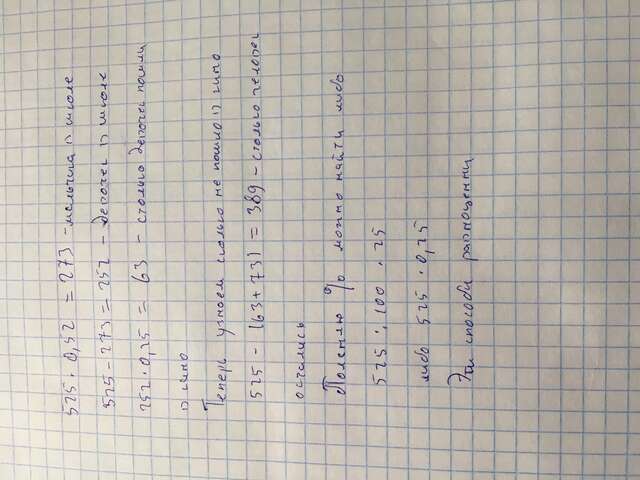 525 · 0,52 = 273 - мальчика в школе
525 - 273 = 252 - девочек в школе
252 · 0,25 = 63 - столько девочек пошли
в кино
Теперь узнаем сколько не пошло в кино
525 - (63 + 73) = 389 - столько человек
остались
Поясняю % можно найти либо
525 : 100 · 25
либо 525 · 0,25
Эти способи равноценни